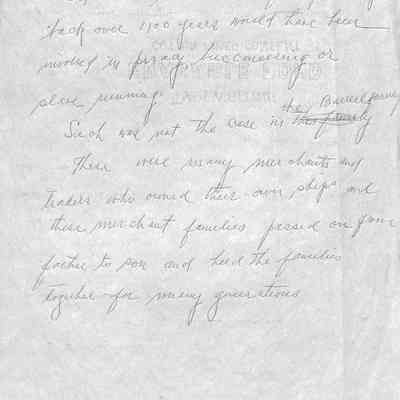 back over 1100 years would have been
involved in piracy buccaneering or
slave running.
Such was not the case in the family the
There were many merchants and
traders who owned their own ships and
these merchant families passed on from
father to son and held the families
together for many generations